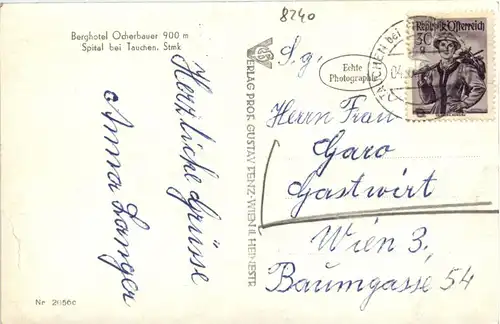 8240
Berghotel Ocherbauer 900 m
Spital bei Tauchen, Stmk
Herzliche Grüsse
Anna Langer
Nr 2056c
VERLAG PROF. GUSTAV FENZ-WIEN II. HEINESTR
Echte
Photographie
TAUCHEN bei
Republik Österreich
S.g.
Herrn Frau
Garo
Gastwirt
Wien 3,
Baumgasse 54